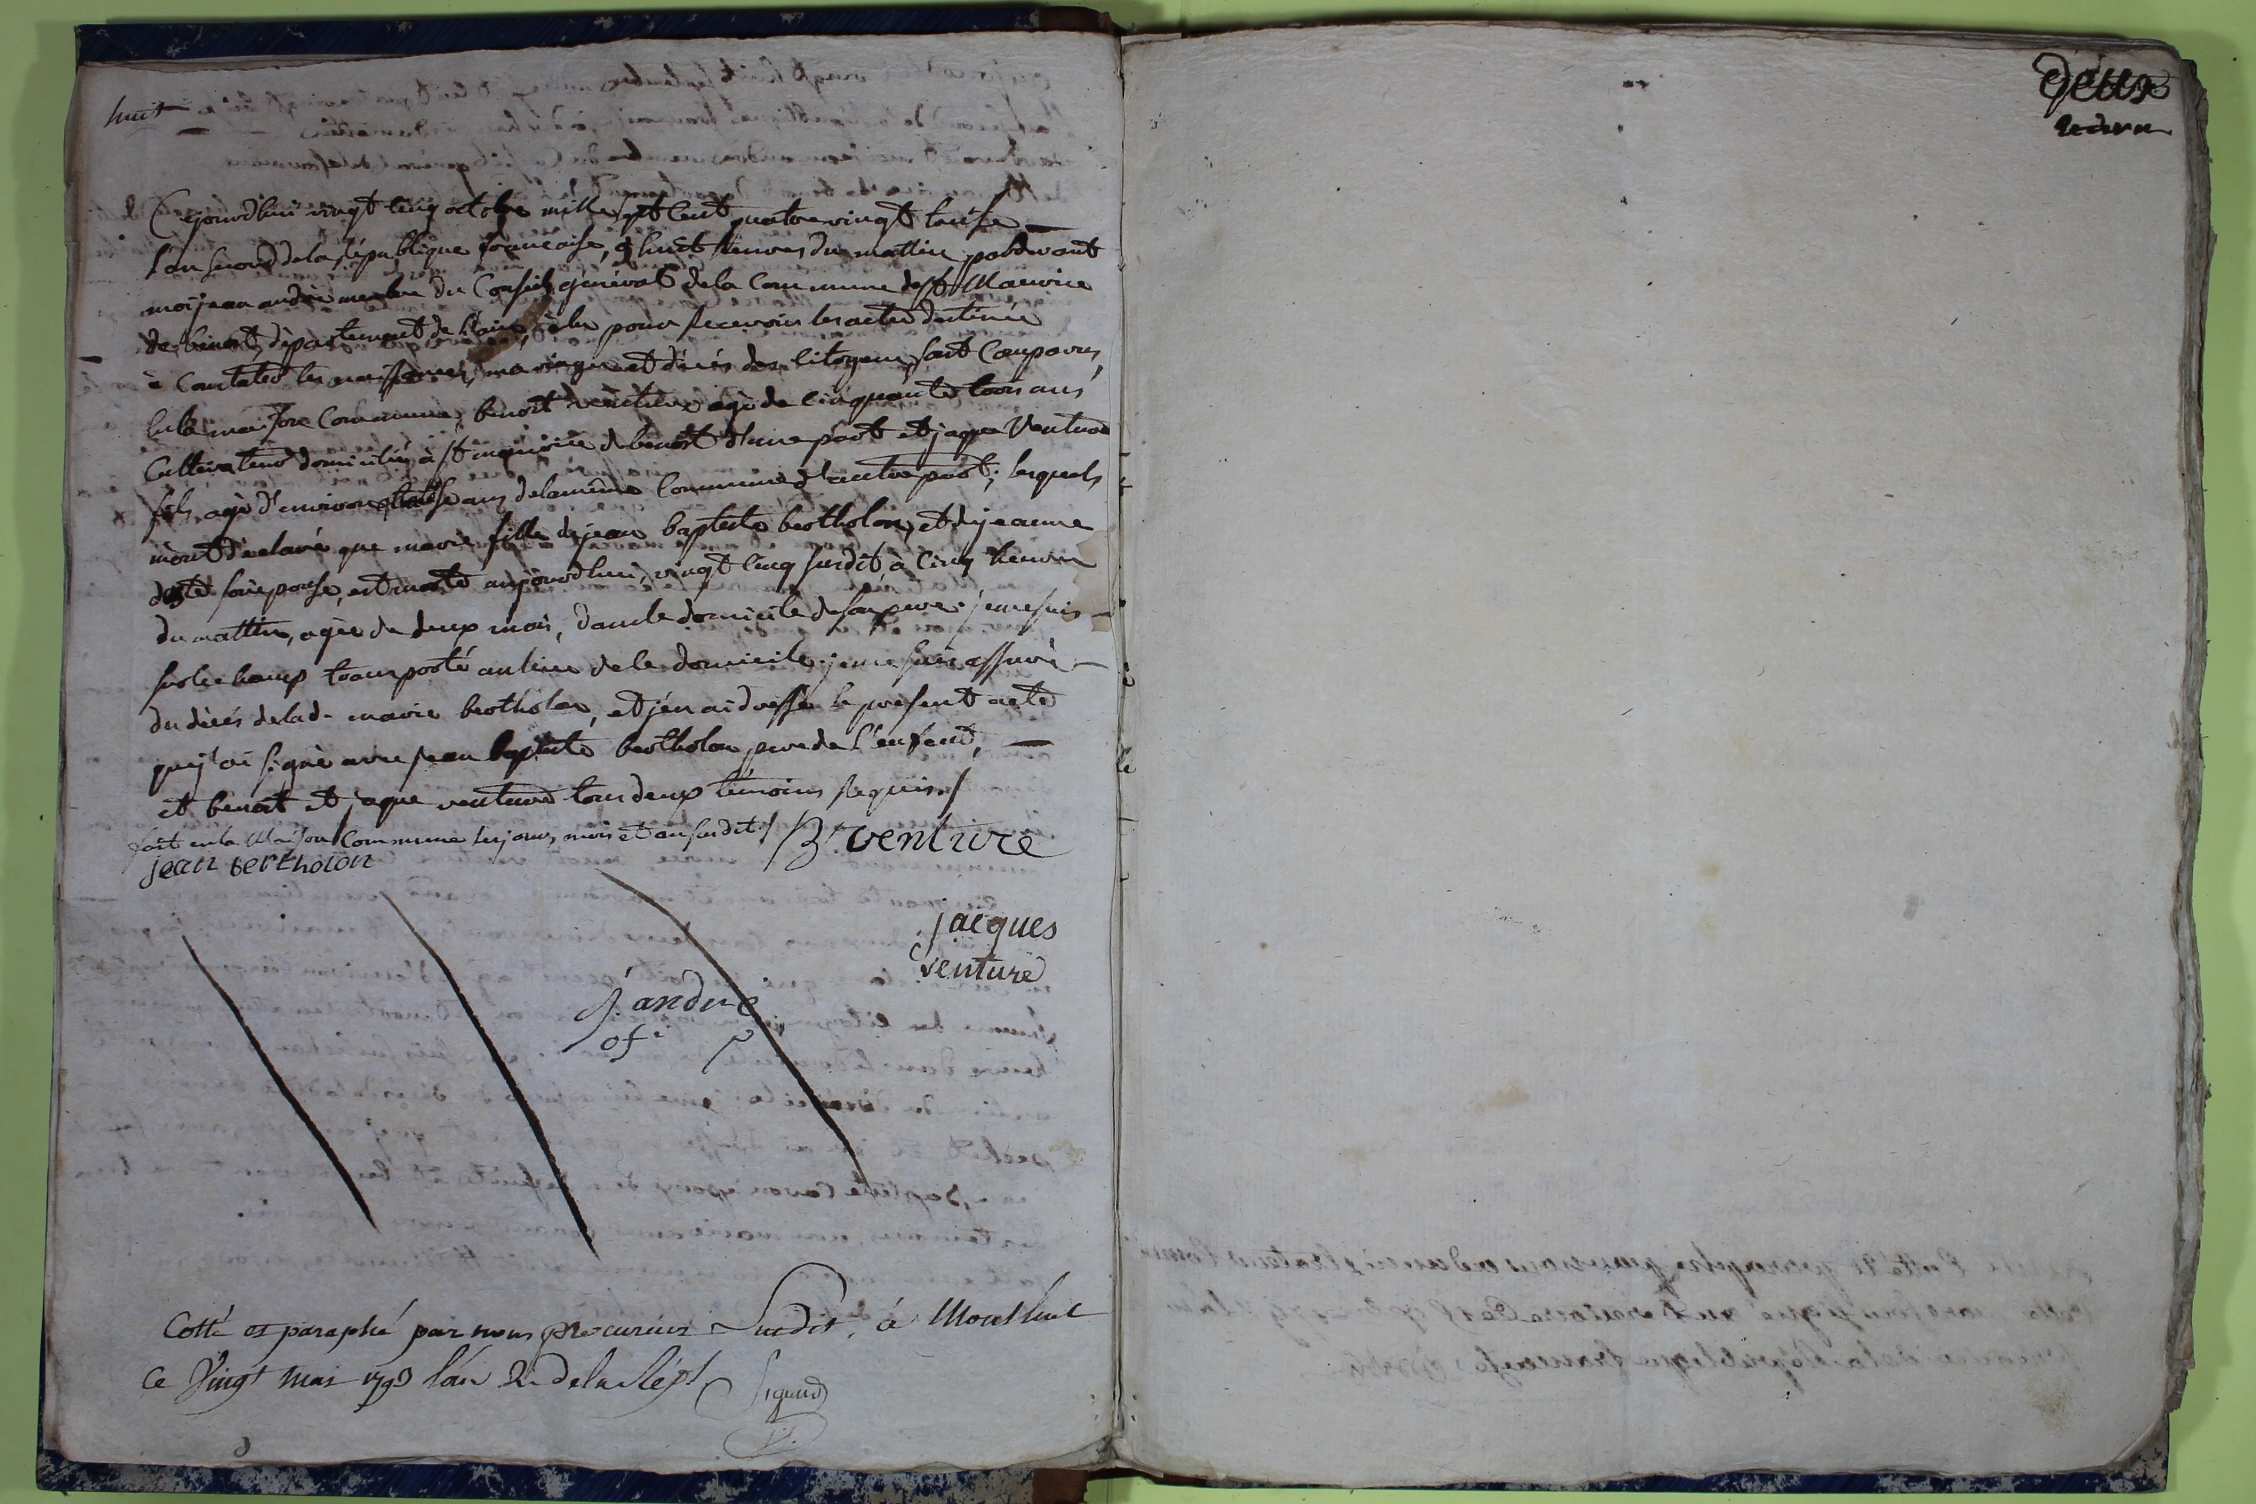 huit
Cejourdhui vingt cinq octobre mille sept cent quatre vingt treise
l'an second de la République francaise, à huit heures du mattin pardevant
moi jean andré membre du Conseil général de la Commune de st Maurice
de beinost, département de l'ain, élu pour recevoir les actes destinés
à Constater les naissances, mariages et décés des citoyens, sont Comparus,
en la maison Commune, benoit venture agé de cinquante trois ans
Cultivateur domicilié à st maurice de beinost d'une part et jaque Venture
fils, agé d'environ ans de la même Commune d'autre part; lesquels
m'ont déclaré que marie fille de jean baptiste bertholon, et de jeanne
son epouse, est morte aujourd'hui, vingt cinq susdit à cinq heures
du mattin, agée de deux mois, dans le domicile de son pere. je me suis
sur le champ transporté au lieu de ce domicile. je me suis assuré
du décés de lad. marie bertholon, et j'en ai dressé le present acte
que j'ai signé avec jean baptiste bertholon, pere de l'enfent,
et benoit et jaque venture tous deux témoins requis./
fait en la Maison Commune les jour, mois et an susdit./
B. venture
jean bertholon
jacques
venture
J. andré
ofi p
Cotté et paraphé par nous procureur Susdit, à Montluel
Ce Vingt mai 1793 l'an 2e de la Rép.
deux